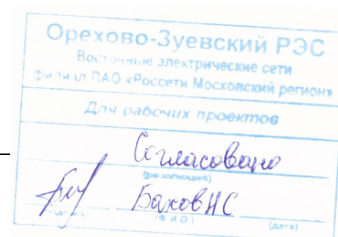 Орехово-Зуевский РЭС
Восточные электрические сети
филиал ПАО «Россети Московский регион»
Для рабочих проектов
Согласовано
(резолюция)
Бахов НС
(Ф.И.О.) (дата)